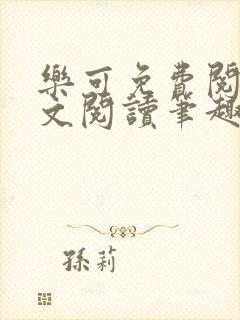 樂可免費閱
文閱讀筆趣
孫莉